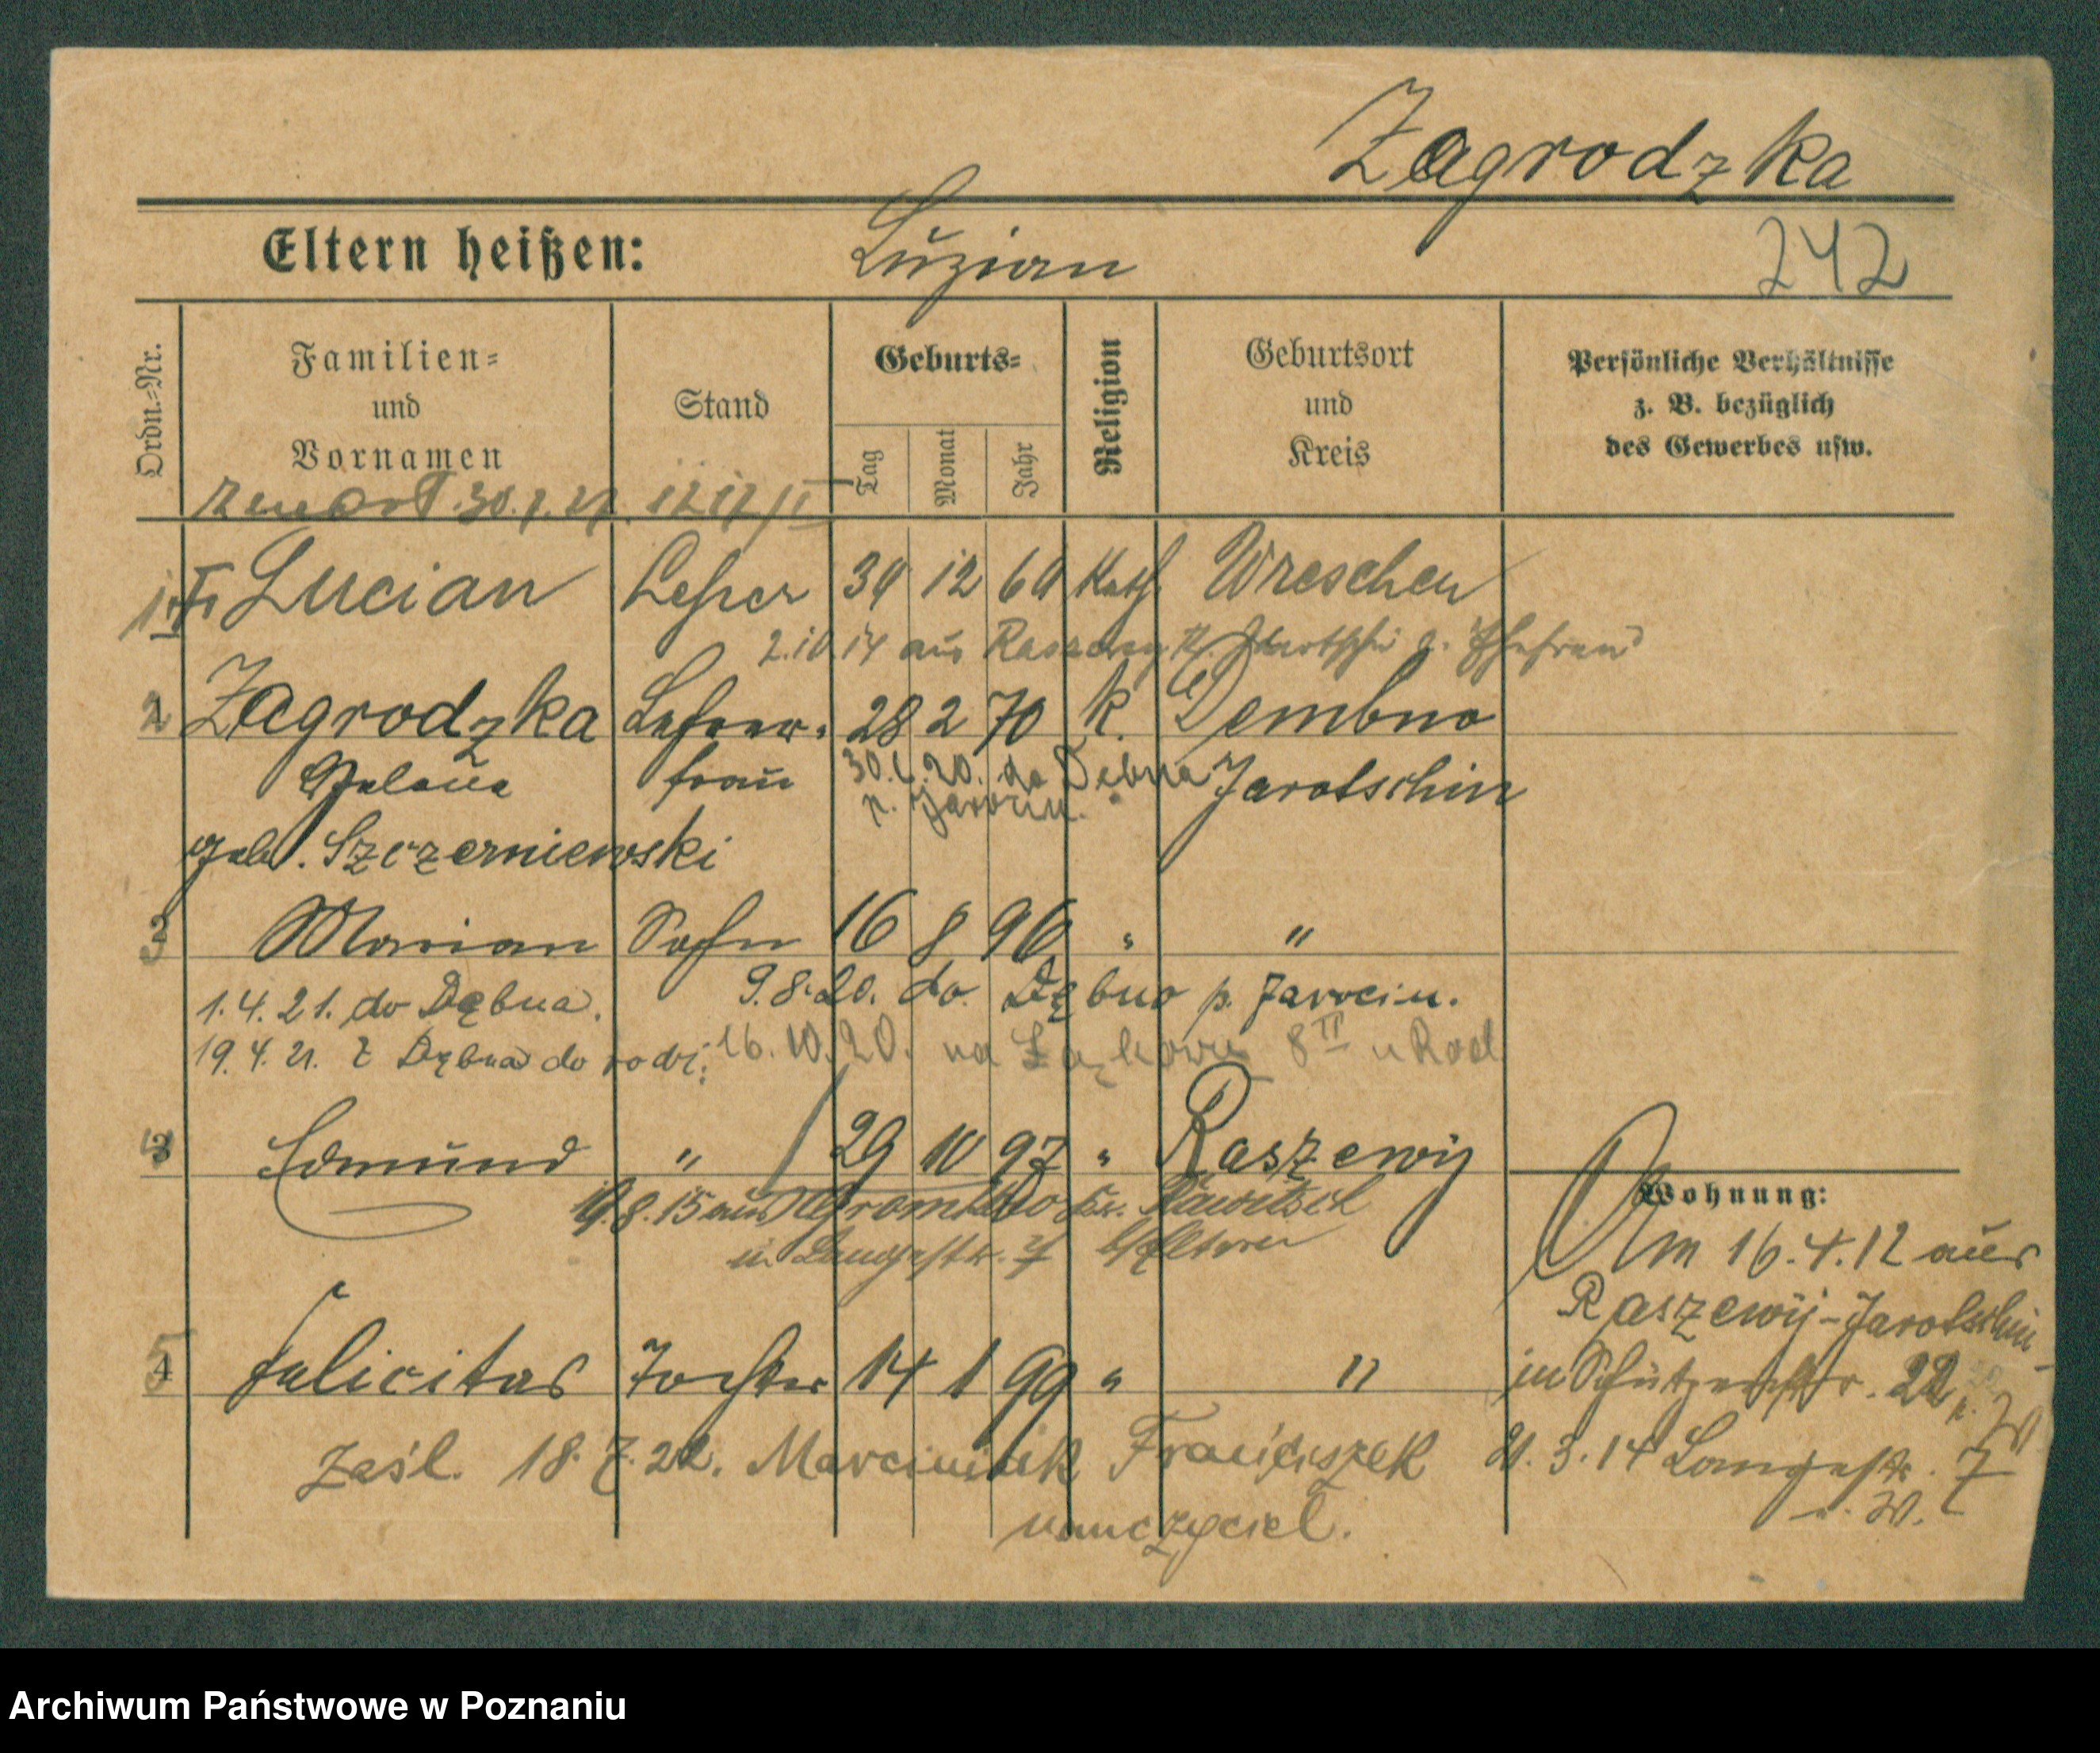 Zagrodzka
Eltern heißen: Luzian
242
Ordn.-Nr.
Familien=
und
Vornamen
Stand
Geburts=
Tag
Monat
Jahr
Religion
Geburtsort
und
Kreis
Persönliche Verhältnisse
z. B. bezüglich
des Gewerbes usw.
1 Lucian Lehrer 30 12 60 Kath. Wreschen
2.10.14 aus z. Ehefrau
2 Zagrodzka Lehrer- 28 2 70 k. Dembno
Helena frau 30.6.20. do Dębna Jarotschin
p. Jarocin.
geb. Szczerniewski
3 Marian Sohn 16 8 96 " "
1.4.21. do Dębna. 9.8.20. do Dębno p. Jarocin.
19.4.21. z Dębna do rodz. 16.10.20. na Łąkową 8 II u Rod
3 Edmund " 29 10 97 " Raszewy
19.8.15 aus Kr. Rawitsch
in Langestr. 7 b/Eltern
Wohnung:
Am 16.4.12 aus
Raszewy-Jarotschin
in Schützenstr. 22
4 Felicitas Tochter 14 1 99 " "
zaśl. 18.7.22. Marciniak Franciszek
nauczyciel.
21.3.14 Langestr. 7